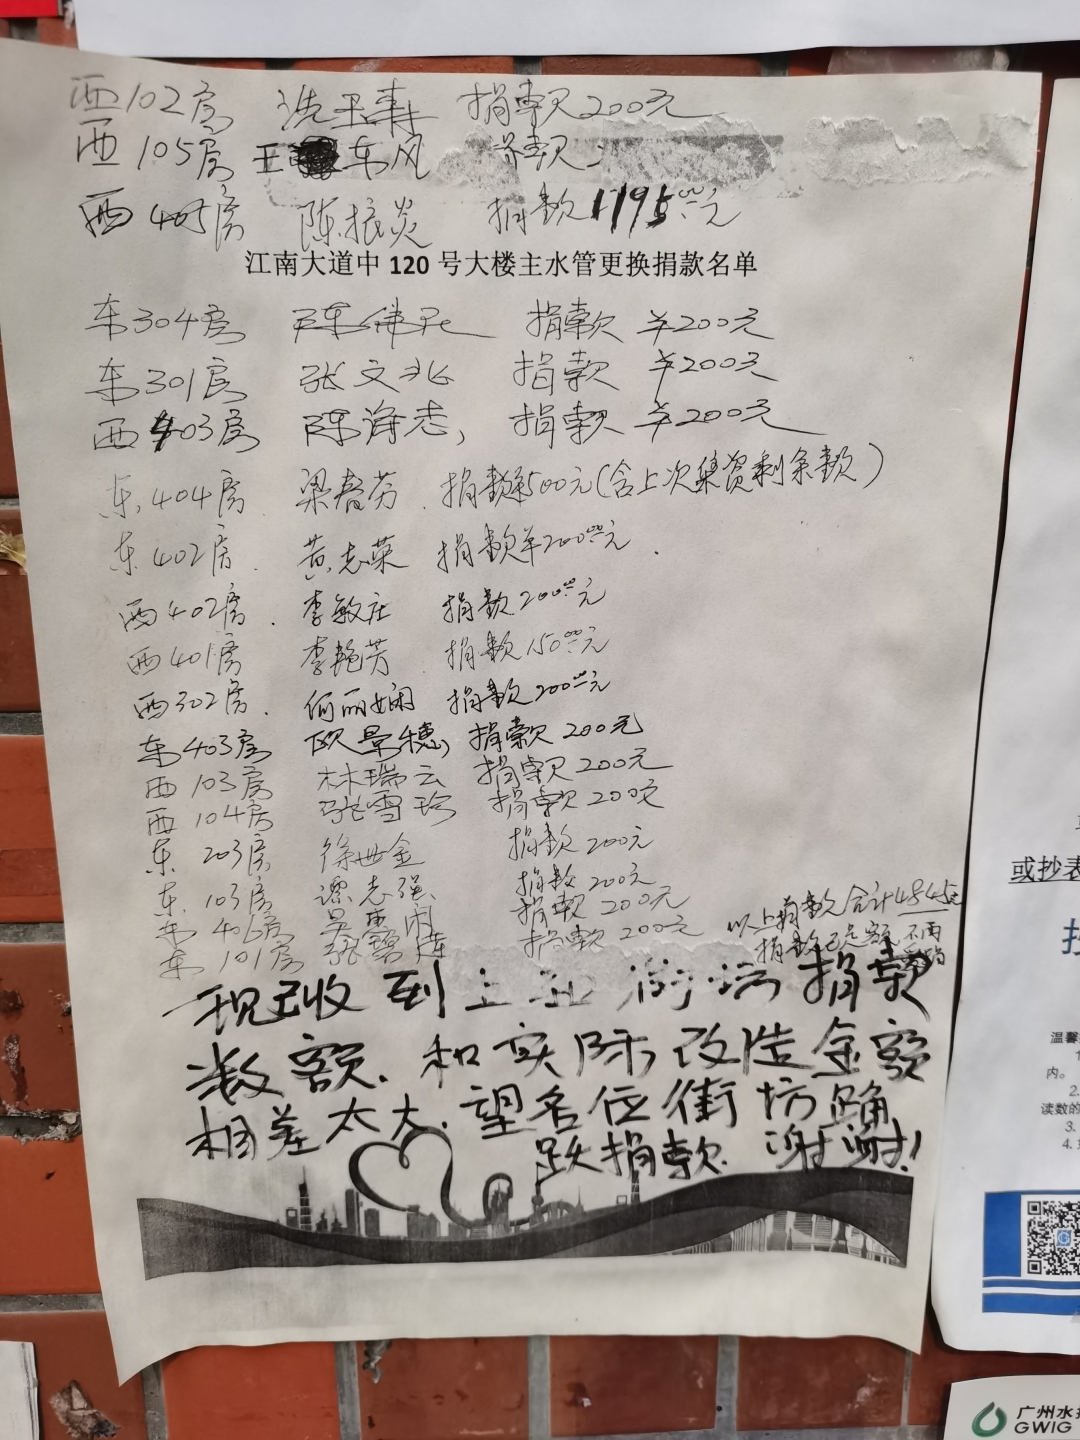 西102房 冼 捐款200元
西105房 王东风 捐款
西405房 陈振炎 捐款1195元
江南大道中 120 号大楼主水管更换捐款名单
东304房 陈 捐款 ¥200元
东301房 张文兆 捐款 ¥200元
西403房 陈海志, 捐款 ¥200元
东404房 梁春芳 捐款¥500元(含上次集资剩余款)
东402房. 黄志荣 捐款¥200.00元.
西402房. 李敏庄 捐款200.00元
西401房 李艳芳 捐款150.00元
西302房. 何丽娴 捐款200.00元
东403房 欧景穗, 捐款200元
西103房 林瑞云 捐款200元
西104房 张雪珍 捐款200元
东203房 徐世金 捐款 200元
东103房 谭志强 捐款 200元
东406房 吴 捐款 200元
东101房 张 捐款 200元
以上捐款合计4845元
捐款已足额,不再
现已收到上 街坊捐款
数额.和实际改造金额
相差太大.望各位街坊踊
跃捐款.谢谢!
或抄表
温馨
内。
2.
读数的
3.
4.
广州水
GWIG